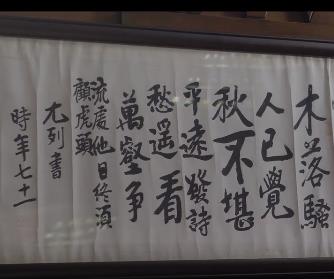 木落騷
人已覺
秋不堪
平遠發詩
愁遥看
萬壑争
流處他日終須
顧虎頭
尢列書
時年七十一